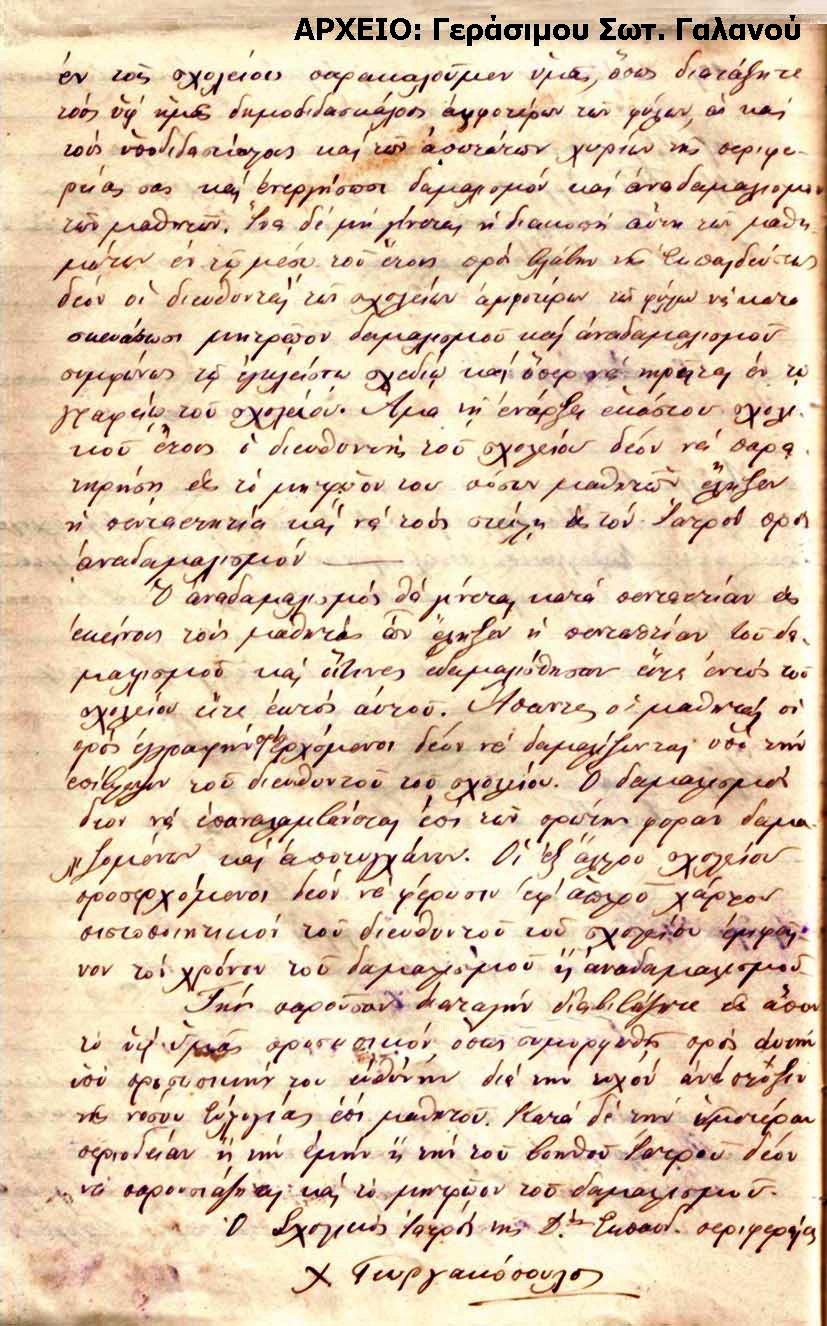 ΑΡΧΕΙΟ: Γεράσιμου Σωτ. Γαλανού
ἐν τοῖς σχολείοις παρακαλοῦμεν ὑμᾶς, ὅπως διατάξητε
τούς ὑφ' ὑμᾶς δημοδιδασκάλους ἀμφοτέρων τῶν φύλων, ὡς καί
τούς ὑποδιδασκάλους καί τῶν ἀπωτάτων χωρίων τῆς περιφε-
ρείας σας καί ἐνεργήσωσι δαμαλισμόν καί ἀναδαμαλισμόν
τῶν μαθητῶν. Ἵνα δέ μή γίνεται ἡ διακοπή αὕτη τῶν μαθη-
μάτων ἐν τῷ μέσῳ τοῦ ἔτους πρός βλάβην τῆς Ἐκπαιδεύσεως
δέον οἱ διευθυνταί τῶν σχολείων ἀμφοτέρων τῶν φύλων νά κατα
σκευάσωσι μητρῷον δαμαλισμοῦ καί ἀναδαμαλισμοῦ
συμφώνως τῷ ἐγκλείστῳ σχεδίῳ καί ὅπερ νά τηρῆται ἐν τῷ
γραφείῳ τοῦ σχολείου. Ἅμα τῇ ἐνάρξει ἑκάστου σχολι-
κοῦ ἔτους ὁ διευθυντής τοῦ σχολείου δέον νά παρα-
τηρήσῃ εἰς τό μητρῷον του πόσων μαθητῶν ἔληξεν
ἡ πενταετηρία καί νά τούς στείλῃ εἰς τόν Ἰατρόν πρός
ἀναδαμαλισμόν
Ὁ ἀναδαμαλισμός θά γίνεται κατά πενταετίαν εἰς
ἐκείνους τούς μαθητάς ὧν ἔληξεν ἡ πενταετία τοῦ δα-
μαλισμοῦ καί οἵτινες ἐδαμαλίσθησαν εἴτε ἐντός τοῦ
σχολείου εἴτε ἐκτός αὐτοῦ. Ἅπαντες οἱ μαθηταί οἱ
πρός ἐγγραφήν προσερχόμενοι δέον νά δαμαλίζωνται ὑπό τήν
ἐπίβλεψιν τοῦ διευθυντοῦ τοῦ σχολείου. Ὁ δαμαλισμός
δέον νά ἐπαναλαμβάνεται ἐπί τῶν πρώτην φοράν δαμα-
λιζομένων καί ἀποτυγχάνων. Οἱ ἐξ ἄλλου σχολείου
προσερχόμενοι δέον νά φέρωσιν ἐφ' ἁπλοῦ χάρτου
πιστοποιητικόν τοῦ διευθυντοῦ τοῦ σχολείου ἐμφαῖ-
νον τόν χρόνον τοῦ δαμαλισμοῦ ἤ ἀναδαμαλισμοῦ
Τήν παροῦσαν διαταγήν διαβιβάσητε εἰς ἅπαν
τό ὑφ' ὑμᾶς προσωπικόν ὅπως συμμορφωθῇ πρός αὐτήν
ὑπό προσωπικήν του εὐθύνην διά τήν τυχόν ἀνάπτυξιν
τῆς νόσου Εὐλογίας ἐπί μαθητοῦ. Κατά δέ τήν ὑμετέραν
περιοδείαν ἤ τήν ἐμήν ἤ τήν τοῦ βοηθοῦ Ἰατροῦ δέον
νά παρουσιάζηται καί τό μητρῷον τοῦ δαμαλισμοῦ.
Ὁ Σχολικός Ἰατρός τῆς Ἐκπαιδ. περιφερείας
Χ Γεωργακόπουλος